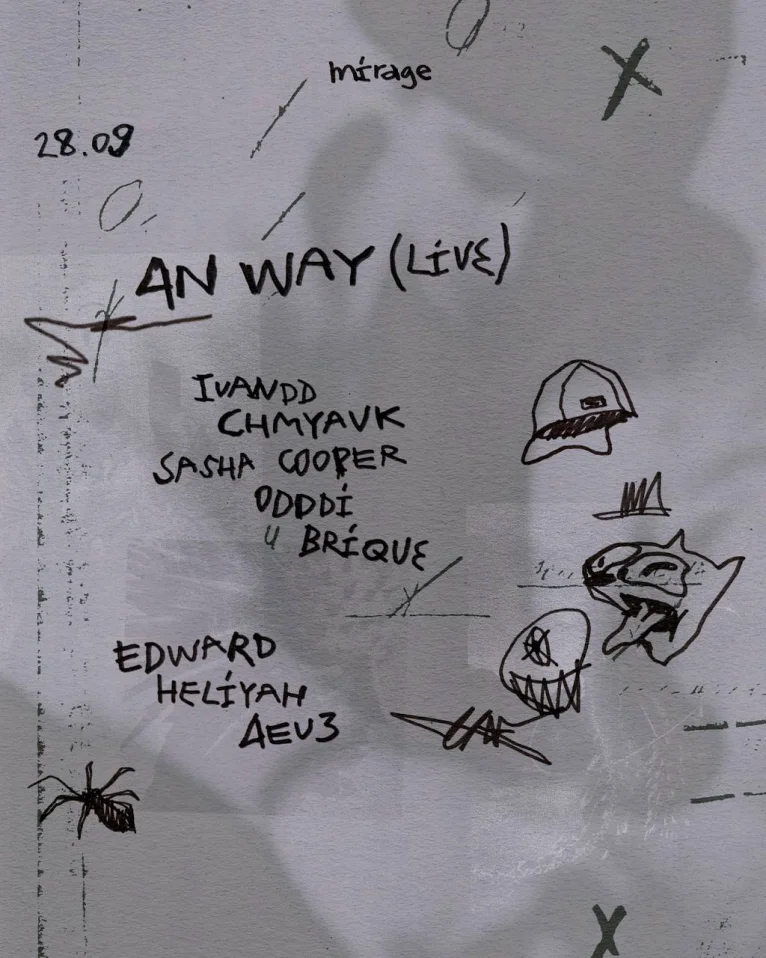 mirage
28.09
AN WAY (LIVE)
IVANDD
CHMYAVK
SASHA COOPER
ODDDI
4 BRIQUE
EDWARD
HELIYAH
AEV3